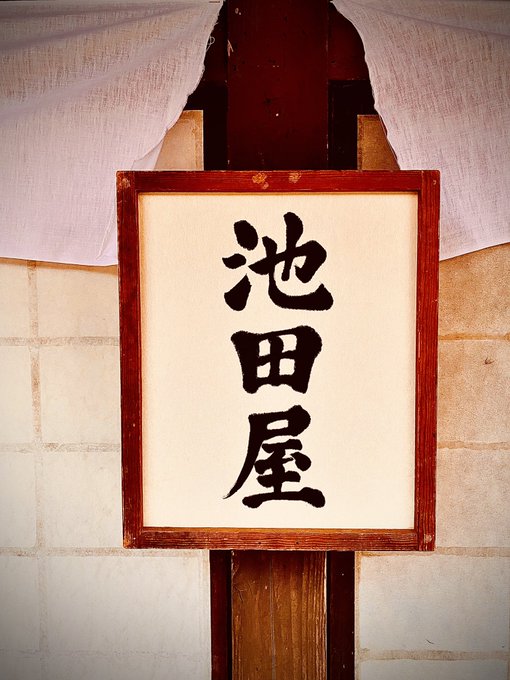 池田屋